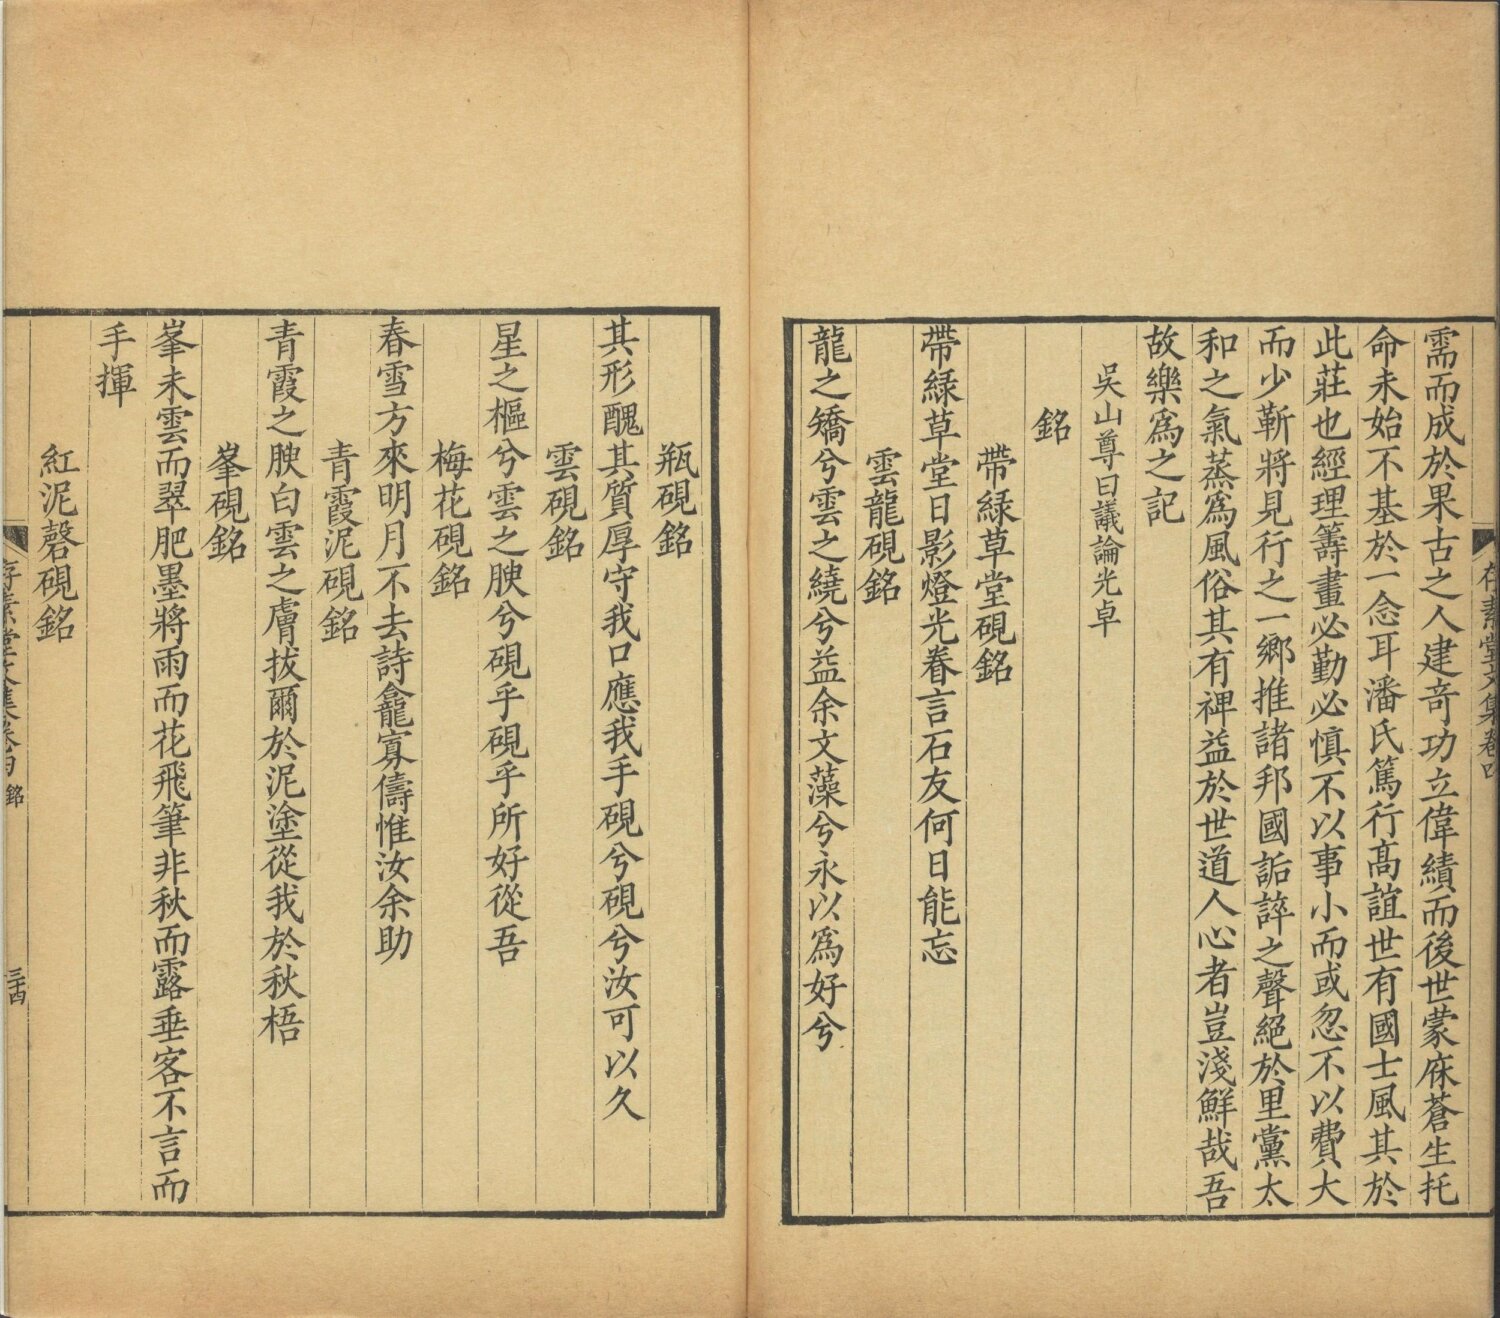 需而成於果古之人建奇功立偉績而後世蒙庥蒼生托
命未始不基於一念耳潘氏篤行高誼世有國士風其於
此莊也經理籌畫必勤必慎不以事小而或忽不以費大
而少靳將見行之一鄉推諸邦國詬誶之聲絕於里黨太
和之氣蒸爲風俗其有裨益於世道人心者豈淺鮮哉吾
故樂爲之記
吳山尊曰議論光卓
銘
帶綠草堂硯銘
帶綠草堂日影燈光眷言石友何日能忘
雲龍硯銘
龍之矯兮雲之繞兮益余文藻兮永以爲好兮
存素堂文集卷四
瓶硯銘
其形醜其質厚守我口應我手硯兮硯兮汝可以久
雲硯銘
星之樞兮雲之腴兮硯乎硯乎所好從吾
梅花硯銘
春雪方來明月不去詩龕寡儔惟汝余助
青霞泥硯銘
青霞之腴白雲之膚拔爾於泥塗從我於秋梧
峯硯銘
峯未雲而翠肥墨將雨而花飛筆非秋而露垂客不言而
手揮
紅泥磬硯銘
存素堂文集卷四 銘 三十四